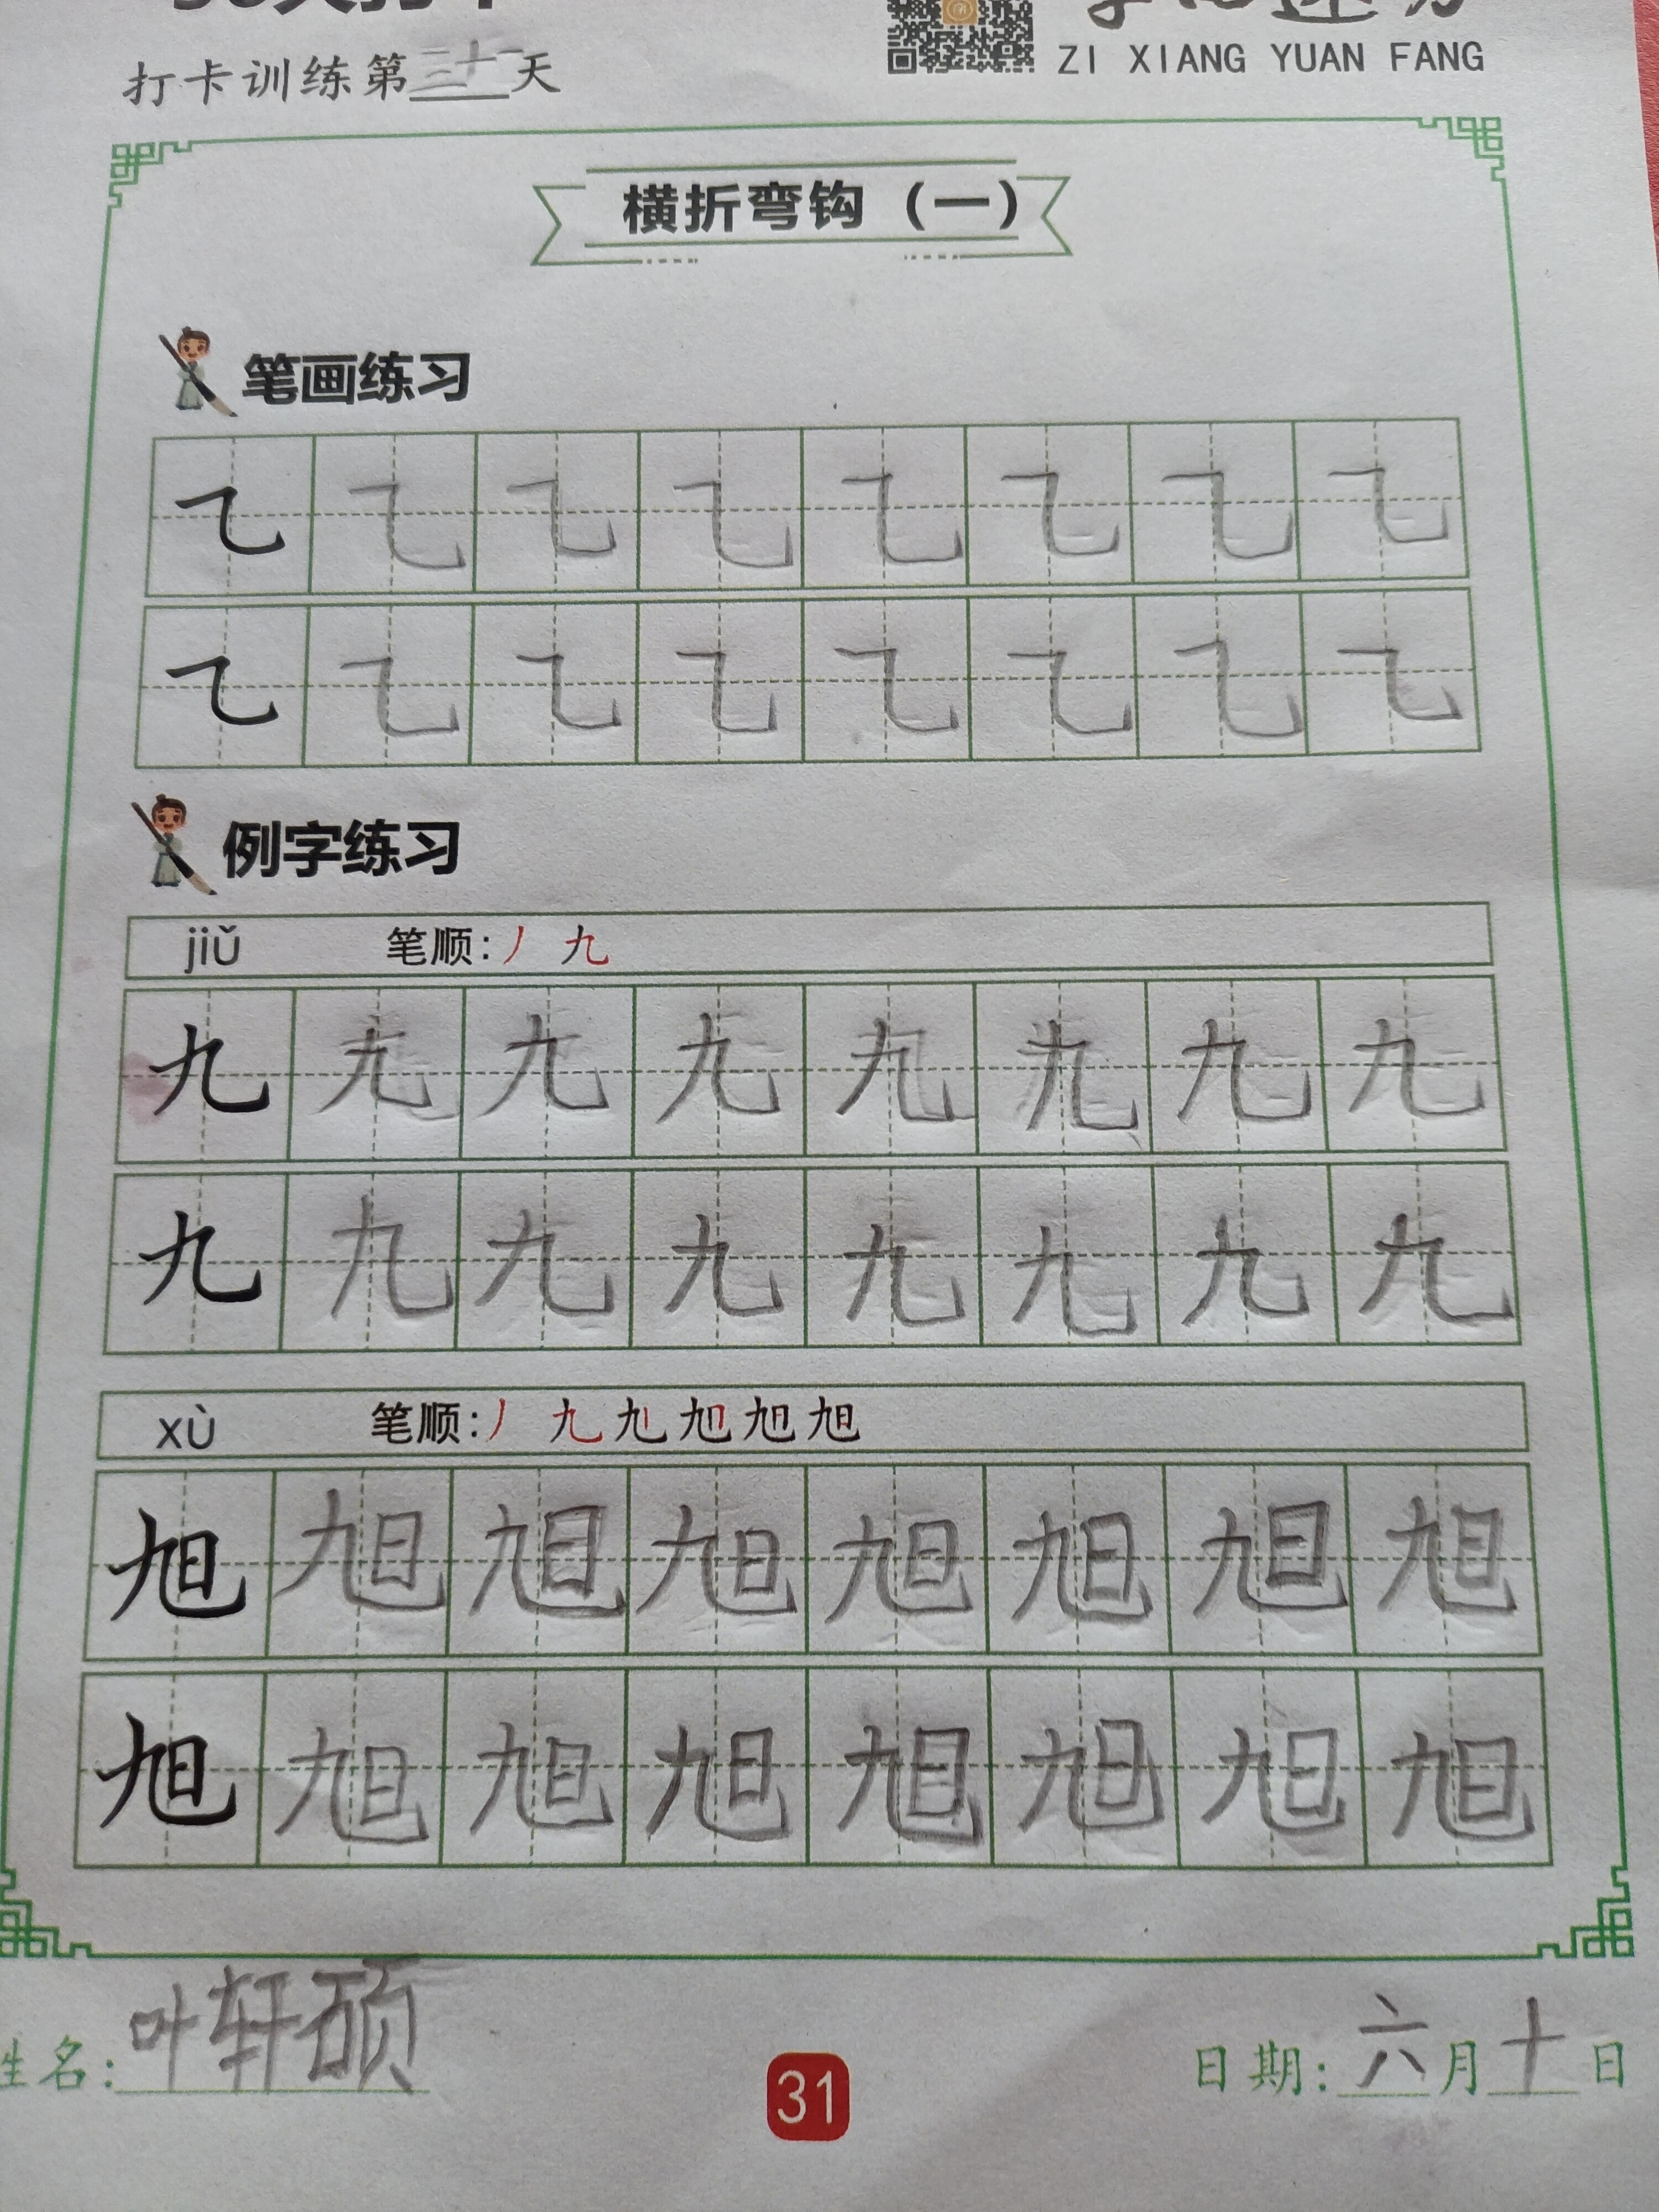 打卡训练第三十一天
ZI XIANG YUAN FANG
横折弯钩（一）
笔画练习
㇈ ㇈ ㇈ ㇈ ㇈ ㇈ ㇈ ㇈
㇈ ㇈ ㇈ ㇈ ㇈ ㇈ ㇈ ㇈
例字练习
jiǔ 笔顺：丿 九
九 九 九 九 九 九 九 九
九 九 九 九 九 九 九 九
xù 笔顺：丿 九 旭 旭 旭 旭
旭 旭 旭 旭 旭 旭 旭 旭
旭 旭 旭 旭 旭 旭 旭 旭
姓名：叶轩硕
31
日期：六月十日